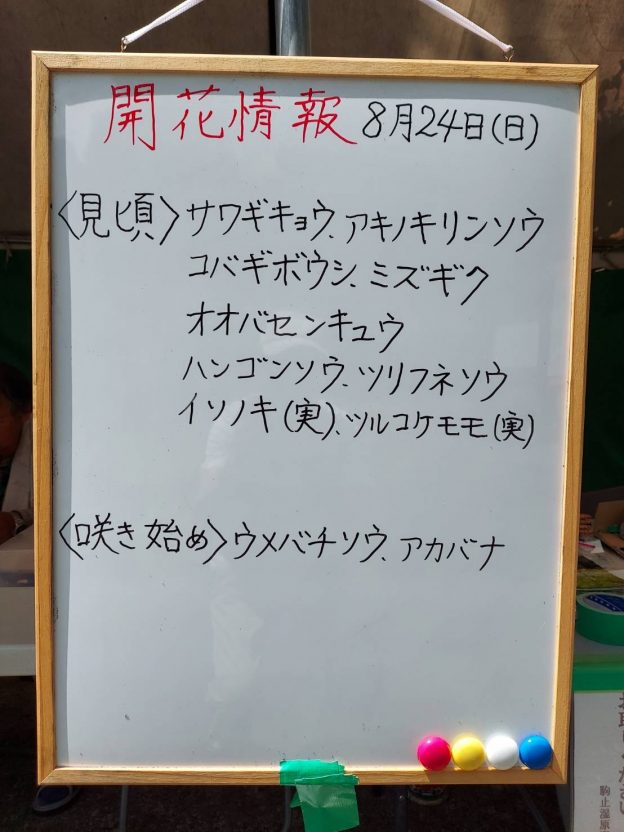 開花情報 8月24日(日)
〈見頃〉サワギキョウ、アキノキリンソウ
コバギボウシ、ミズギク
オオバセンキュウ
ハンゴンソウ、ツリフネソウ
イソノキ(実)、ツルコケモモ(実)
〈咲き始め〉ウメバチソウ、アカバナ
駒止湿原